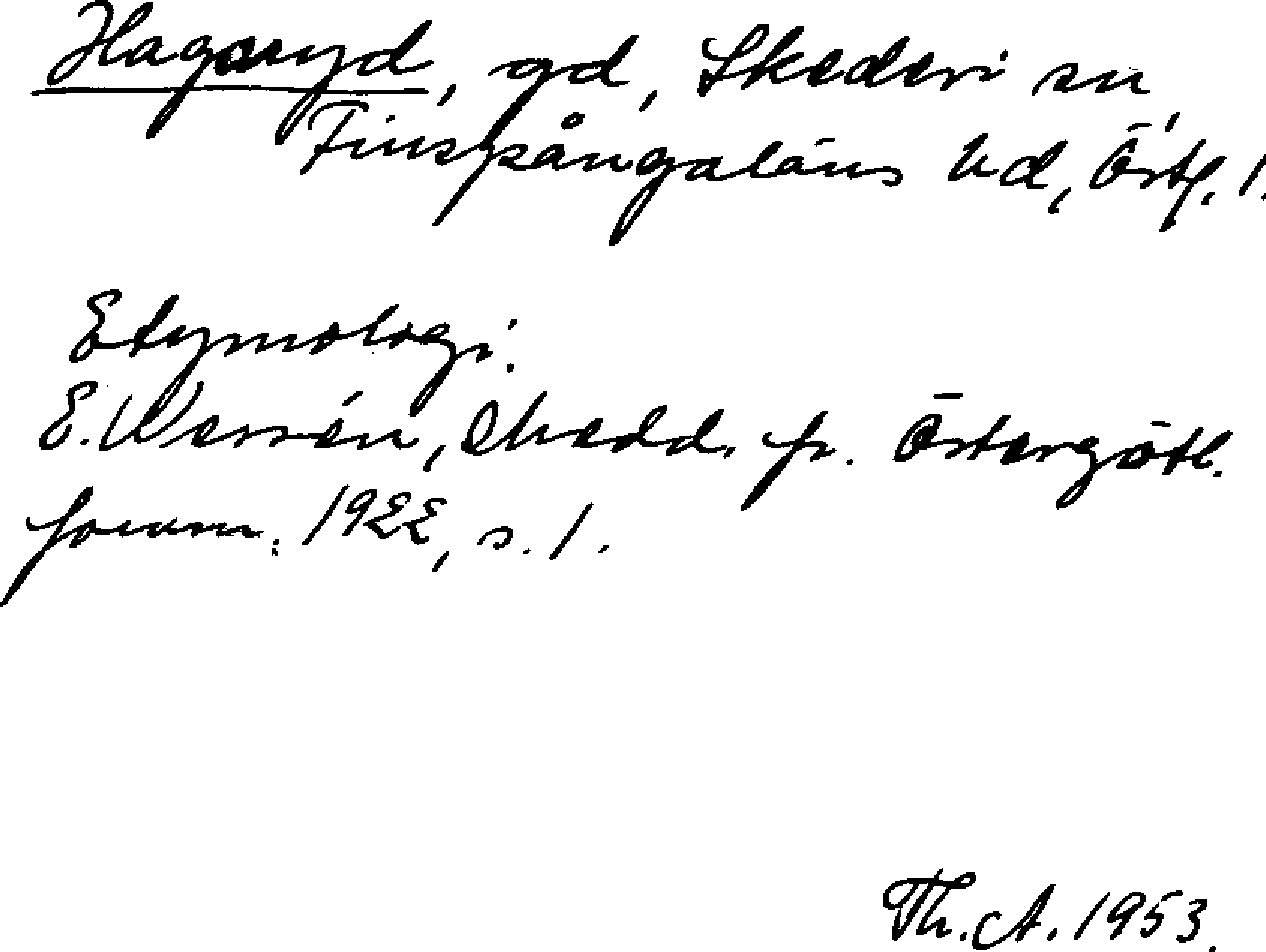 Hagaryd, gd, Skedevi sn,
Finspångaläns hd, Östg. l.
Etymologi.
E. Wessén, Medd. fr. Östergötl.
fornm: 1922, s. 1.
Th. A. 1953.